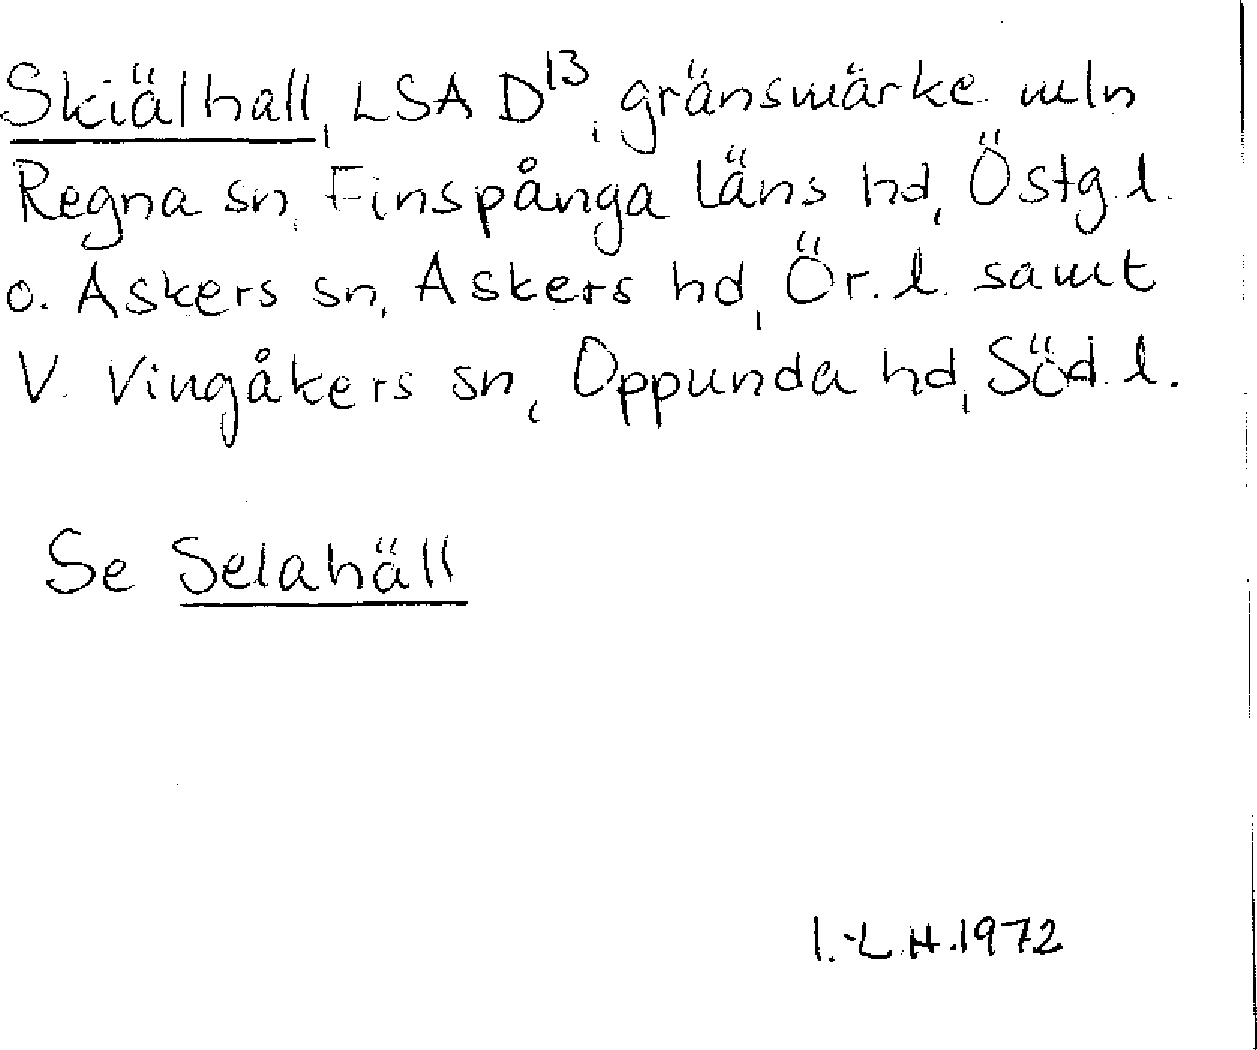 Skiälhall, LSA D13, gränsmärke mln
Regna sn, Finspånga läns hd, Östg.l.
o. Askers sn, Askers hd, Ör.l. samt
V. Vingåkers sn, Oppunda hd, Söd.l.
Se Selahäll
I.-L.H.1972